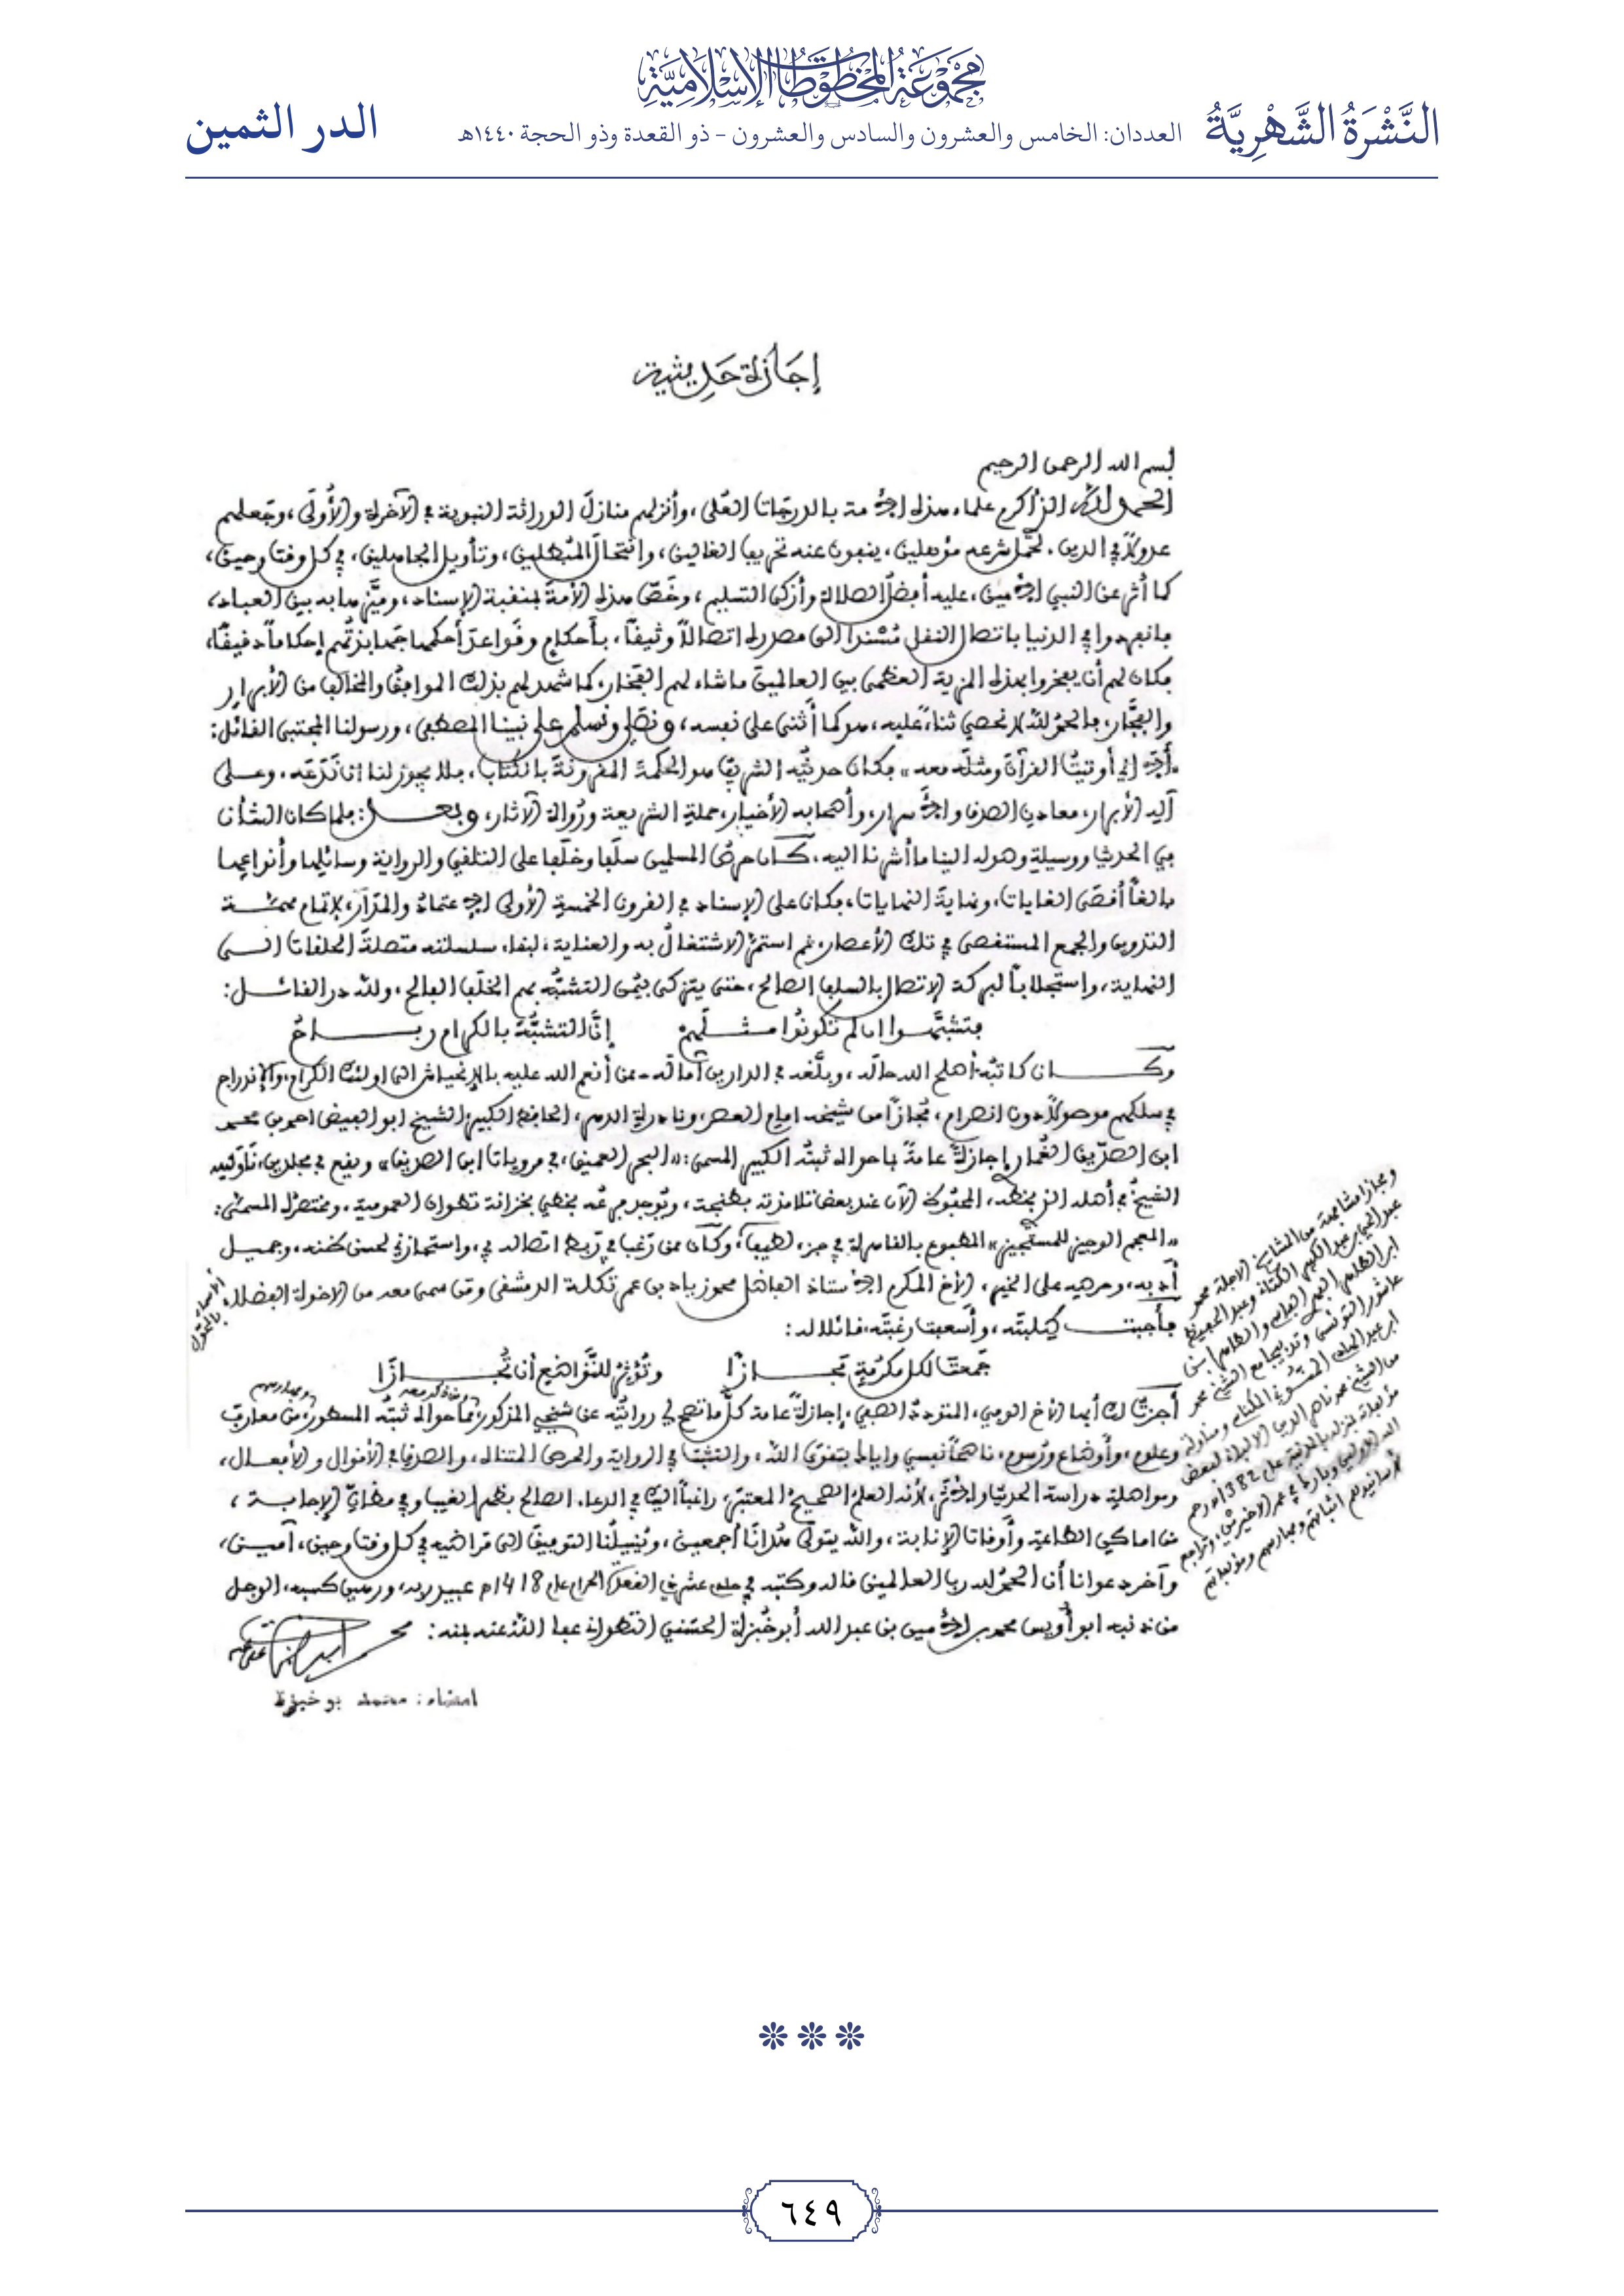 مجموعة المخطوطات الإسلامية
النَّشْرَةُ الشَّهْرِيَّةُ
العددان: الخامس والعشرون والسادس والعشرون - ذو القعدة وذو الحجة ١٤٤٠هـ
الدر الثمين
إجازة حديثية
بسم الله الرحمن الرحيم
الحمد لله الذي أكرم علماء هذه الأمة بالدرجات العُلَى، وأنزلهم منازلَ الوراثة النبوية في الآخرة والأُولَى، وجعلهم
عدولاً في الدين، لحَمْل شرعه مؤهلين، ينفون عنه تحريف الغالين، وانتحالَ المُبطلين، وتأويل الجاهلين، في كل وقت وحين،
كما أُثر عن النبي الأمين، عليه أفضلُ الصلاة وأزكى التسليم، وخَصَّ هذه الأمةَ بمنقبة الإسناد، وميَّزها به بين العباد،
فانفردوا في الدنيا باتصال النقل مُسْنَداً إلى مصدره اتصالاً وثيقاً، بأحكام وقواعدَ أحكمها جَهابذتُهم إحكاماً دقيقًا،
فكان لهم أن يفخروا بهذه المزية العظمى بين العالمين ما شاء لهم الفَخَار، كما شهد لهم بذلك الموافقُ والمخالف من الأبرار
والفجَّار، فالحمد لله لا نحصي ثناءً عليه، هو كما أثنى على نفسه، ونصلي ونسلم على نبينا المصطفى، ورسولنا المجتبى القائل:
«ألا إني أوتيتُ القرآنَ ومثلَه معه» فكان حديثُه الشريف هو الحكمةَ المقرونةَ بالكتاب، فلا يجوز لنا أن نَدَعَه، وعلى
آله الأبرار، معادن الصدق والأسرار، وأصحابه الأخيار، حملةِ الشريعة ورُواة الآثار، وبعد: فلما كان الشأن
في الحديث ووسيلةِ وصوله إلينا ما أشرنا إليه، كان حرصُ المسلمين سلَفا وخلَفا على التلقي والرواية وسائلها وأنواعِها
بالغاً أقصَى الغايات، ونهايةَ النهايات، فكان على الإسناد في القرون الخمسة الأولى الاعتمادُ والمَدَار، لإتمام مهمة
التدوين والجمع المستقصى في تلك الأعصار، ثم استمرَّ الاشتغالُ به والعناية، لبقاء سلسلته متصلةَ الحلقات إلى
النهاية، واستجلاباً لبركة الاتصال بالسلف الصالح، حتى يتزكى بيُمْن التشبُّه بهم الخلَفُ الفالح، ولله در القائل:
فتشبَّهوا إن لم تكونُوا مثلَهم إنَّ التشبُّهَ بالكرام رباحُ
وكان كاتبُه أصلح الله حالَه، وبلَّغه في الدارين آمالَه - ممن أنعم الله عليه بالانحياش إلى أولئك الكرام، والاندراج
في سلكهم موصولاً دون انصرام، مُجازًا من شيخه إمام العصر، ونادرة الدهر، الحافظ الكبير الشيخ أبو الفيض أحمد بن محمد
ابن الصدّيق الغُماري إجازةً عامةً بما حواه ثبتُه الكبير المسمى: «البحر العميق، في مرويات ابن الصديق» ويقع في مجلدين،
الشيخُ في أصله الذي بخطه، المحفوظ الآن عند بعض تلامذته بطنجة، ويُوجد فرعُه بخطي بخزانة تطوان العمومية، ومختصرُه المسمَّى:
«المعجم الوجيز للمستجيز» المطبوع بالقاهرة في جزء لطيف، وكان ممن رَغِب في رَبْط اتصاله بي، واستجازني لحسن ظنه، وجميل
أدبه، وحرصه على الخير، الأخ المكرم الأستاذ الفاضل محمد زياد بن عمر تكلة الدمشقي ومن سمى معه من الإخوة الفضلاء
فأجبت طَلِبتَه، وأسعفت رغبتَه، قائلا له:
جَمعتَ لكل مَكرُمَةٍ مَجازًا وتُؤْثِرُ للتَّواضُعِ أن تُجازَا
أجزتُ لك أيها الأخ الوفي، المتوددُ الصفي، إجازةً عامة كلَّ ما تصح لي روايتُه عن شيخي المذكور، مما حواه ثبتُه المسطور، من معارف
وعلوم، وأوضاع ورُسوم، ناصحاً نفسي وإياك بتقوى الله، والتثبت في الرواية والحرص المتناه، والصدق في الأقوال والأفعال،
ومواصلة دراسة الحديث والأثر، لأنه العلمُ الصحيحُ المعتبَر، راغباً إليك في الدعاء الصالح بظهر الغيب وفي مظانّ الإجابة،
من أماكن الطاعة وأوقات الإنابة، والله يتولى هُدانَا أجمعين، ويُنيلُنا التوفيقَ إلى مراضيه في كل وقت وحين، آمين،
وآخر دعوانا أن الحمد لله رب العالمين قاله وكتبه في حادي عشر ذي القعدة الحرام عام 1418هـ عبيد ربه، ورهين كسبه، الوجل
من ذنبه أبو أويس محمد بن الأمين بن عبد الله أبو خُبزة الحسَني التطواني عفا الله عنه بمنه:
امضاء: محمد بو خبزة
٦٤٩